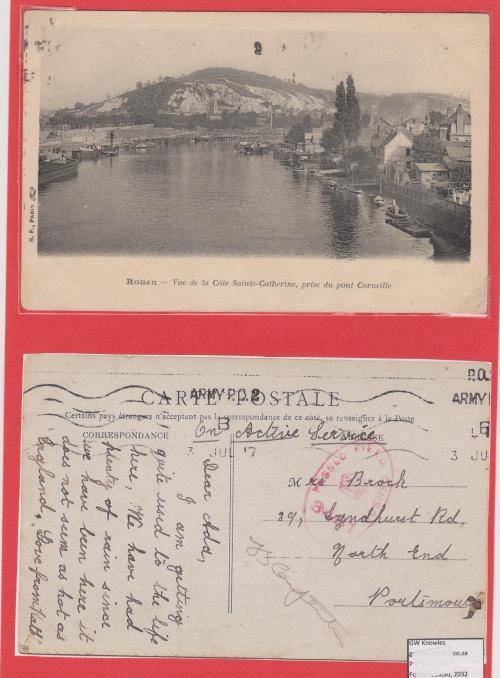 B. F., PARIS
Rouen – Vue de la Côte Sainte-Catherine, prise du pont Corneille
CARTE POSTALE
ARMY P.O. 2
P.O.
ARMY
Certains pays étrangers n'acceptant pas la correspondance de ce côté, se renseigner à la Poste
CORRESPONDANCE
B
3 JUL 17
3 JU
On Active Service
PASSED FIELD
Dear Add,
I am getting
quite used to the life
here. We have had
plenty of rain since
we have been here it
does not seem as hot as
England. Love from
Mrs Brock
39, Lyndhurst Rd,
North End
Portsmouth
GW Knowles
co.za
2032